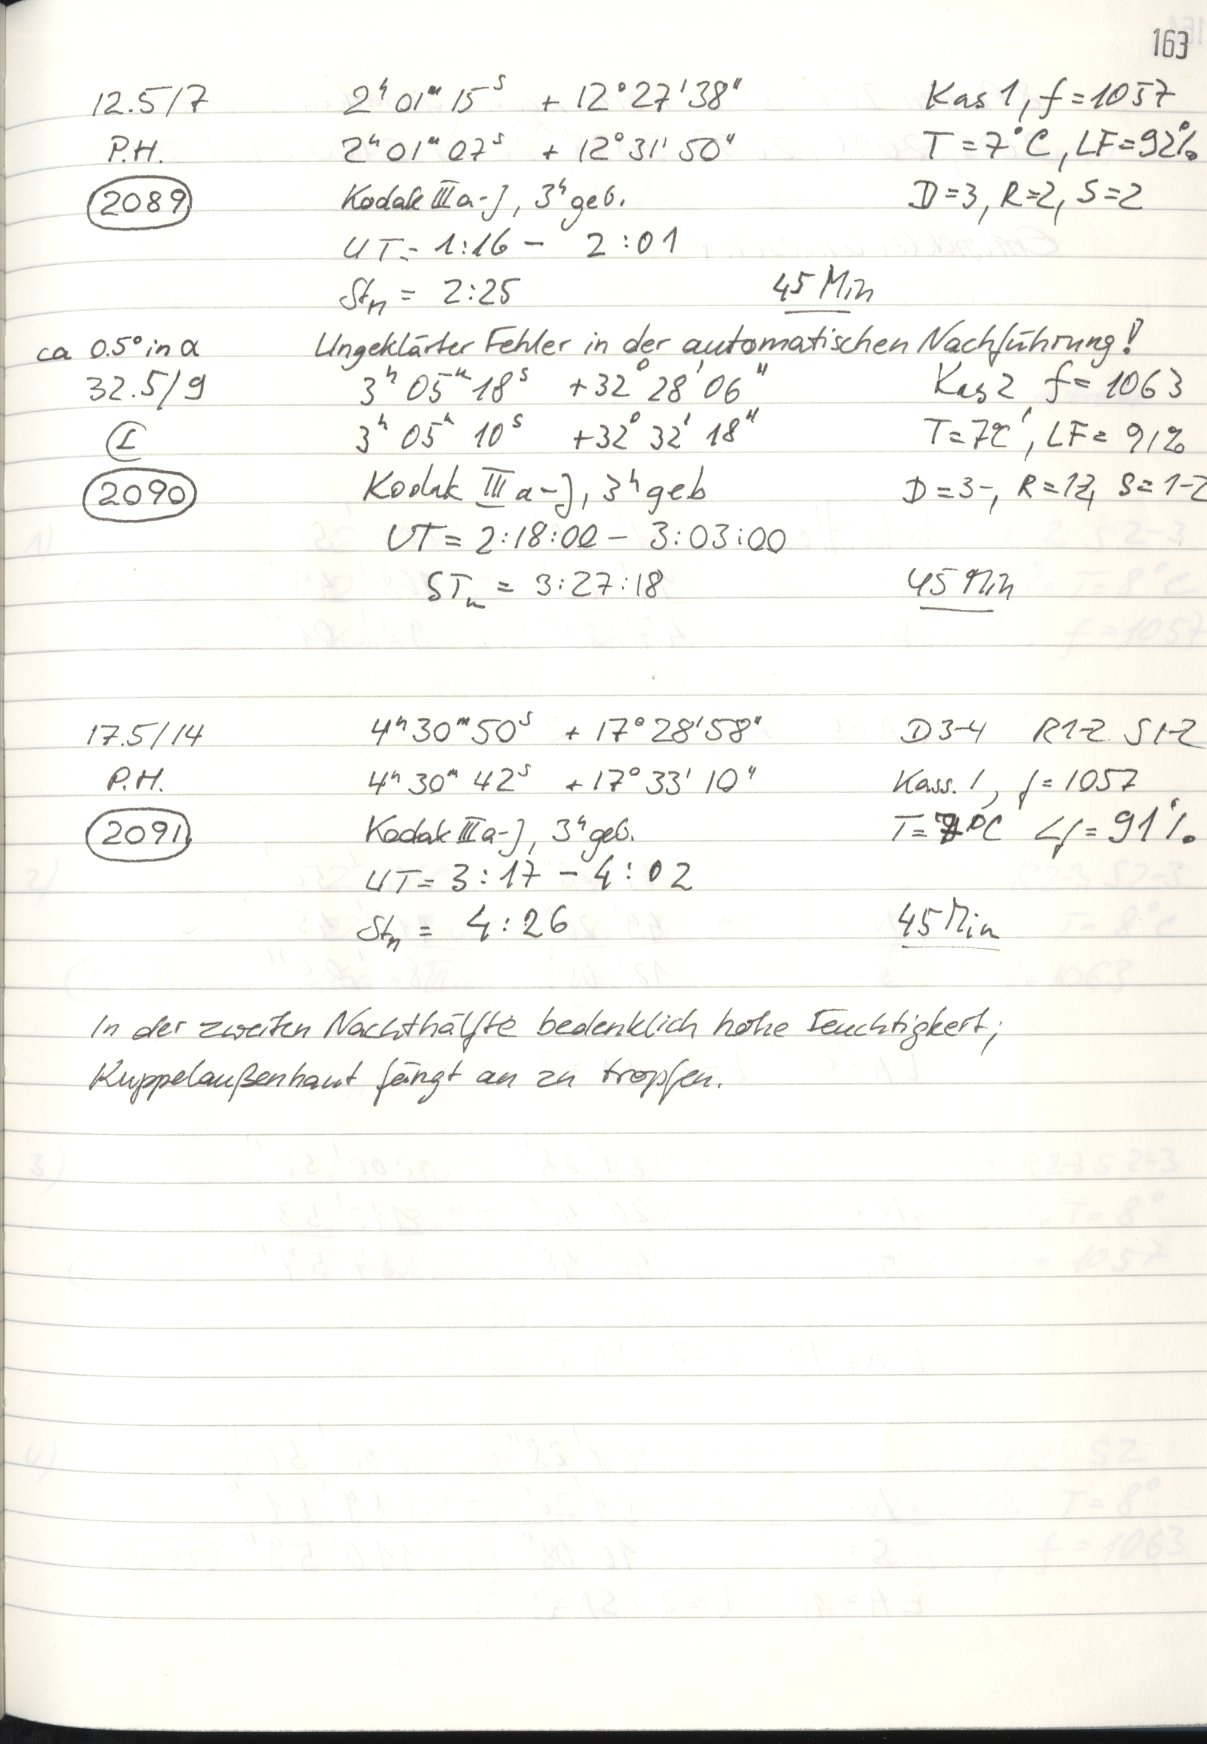 163
12.5/7 2ʰ 01ᵐ 15ˢ + 12° 27' 38" Kas 1, f = 1057
P.H. 2ʰ 01ᵐ 07ˢ + 12° 31' 50" T = 7°C, LF = 92%
2089 Kodak IIIa-J, 3ʰ geb. D = 3, R = 2, S = 2
UT = 1:16 - 2:01
Stn = 2:25 45 Min
ca 0.5° in α Ungeklärter Fehler in der automatischen Nachführung!
32.5/9 3ʰ 05ᵐ 18ˢ +32° 28' 06" Kas 2 f = 1063
3ʰ 05ᵐ 10ˢ +32° 32' 18" T = 7°C, LF = 91%
2090 Kodak IIIa-J, 3ʰ geb D = 3-, R = 1-2, S = 1-2
UT = 2:18:00 - 3:03:00
STn = 3:27:18 45 Min
17.5/14 4ʰ 30ᵐ 50ˢ + 17° 28' 58" D3-4 R1-2 S1-2
P.H. 4ʰ 30ᵐ 42ˢ + 17° 33' 10" Kass. 1, f = 1057
2091 Kodak IIIa-J, 3ʰ geb. T = 7°C Lf = 91%
UT = 3:17 - 4:02
Stn = 4:26 45 Min
In der zweiten Nachthälfte bedenklich hohe Feuchtigkeit;
Kuppelaußenhaut fängt an zu tropfen.